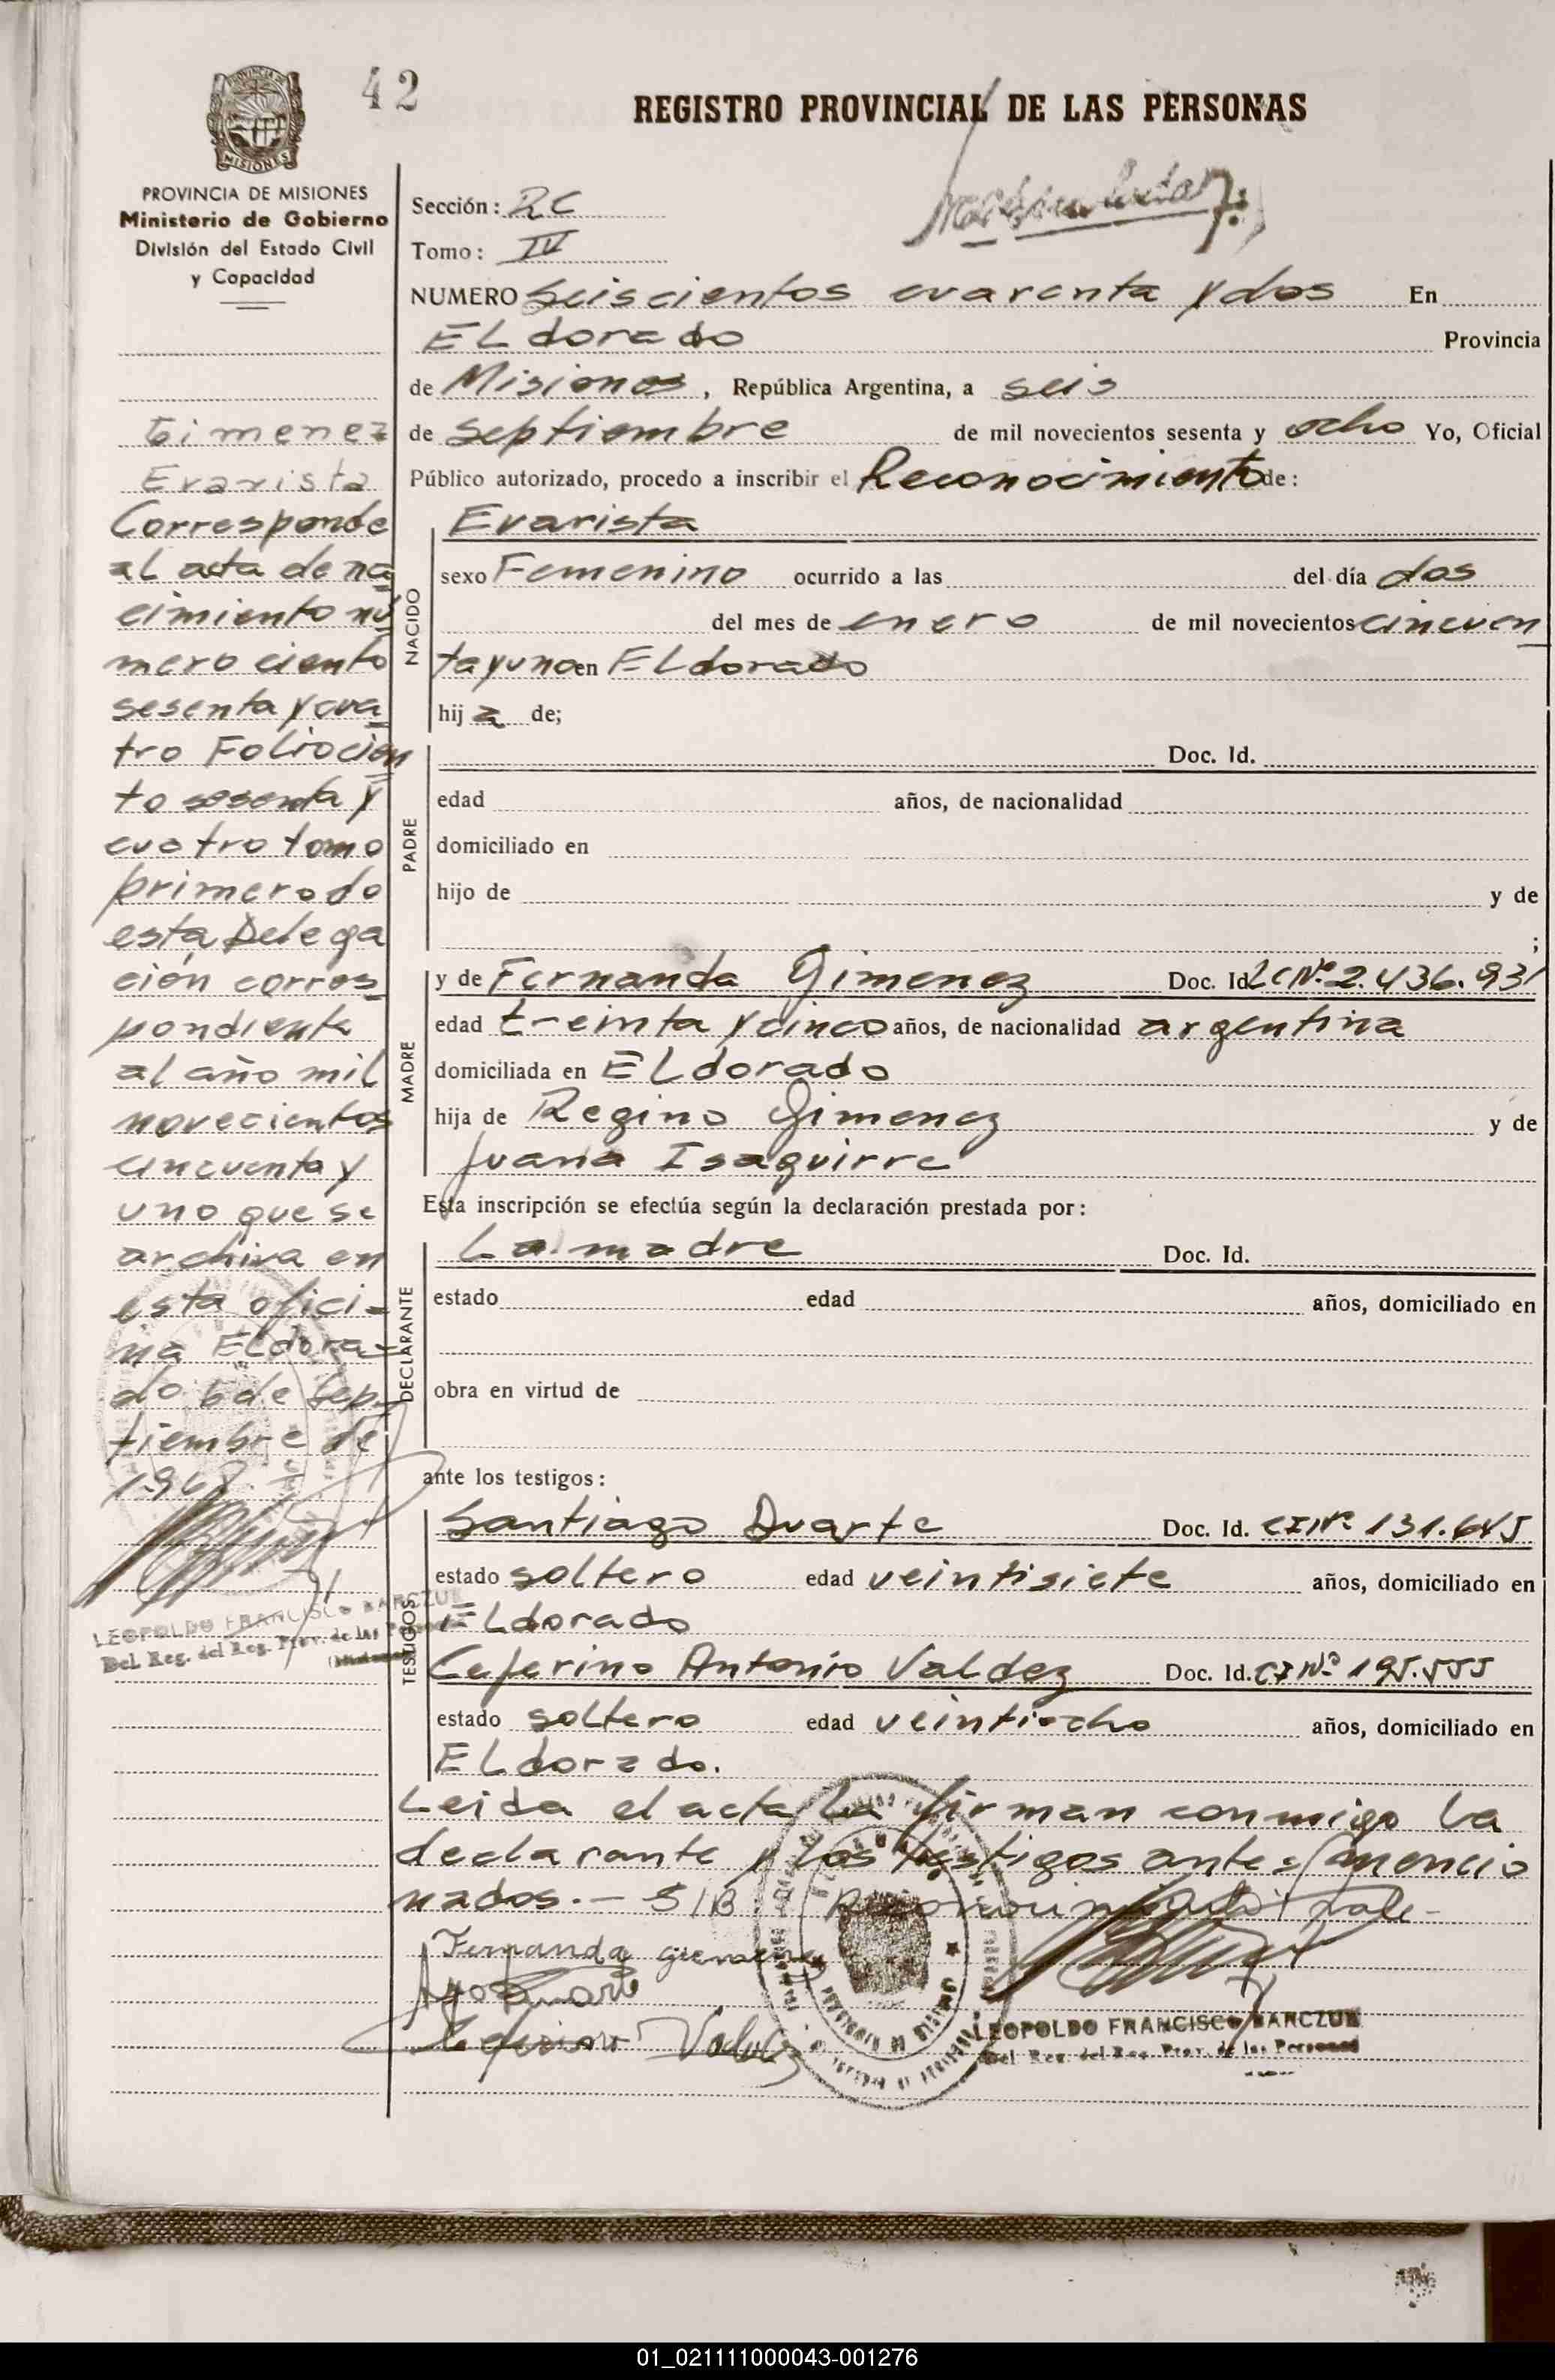 42
REGISTRO PROVINCIAL DE LAS PERSONAS
PROVINCIA DE MISIONES
MISIONES
PROVINCIA DE MISIONES
Ministerio de Gobierno
División del Estado Civil
y Capacidad
Gimenez
Evarista
Corresponde
al acta de na
cimiento nú
mero ciento
sesenta y cua
tro Folio cien
to sesenta y
cuatro tomo
primero de
esta Delega
ción corres
pondiente
al año mil
novecientos
cincuenta y
uno que se
archiva en
esta ofici-
na Eldora-
do 6 de Sep-
tiembre de
1968.-
LEOPOLDO FRANCISCO BARCZUK
Del Reg. del Reg. Prov. de las Personas
Sección: RC
Tomo: IV
NUMERO Seiscientos cuarenta y dos En
ELdorado Provincia
de Misiones, República Argentina, a seis
de septiembre de mil novecientos sesenta y ocho Yo, Oficial
Público autorizado, procedo a inscribir el Reconocimiento de:
NACIDO
Evarista
sexo Femenino ocurrido a las del día dos
del mes de enero de mil novecientos cincuen
ta y uno en ELdorado
hija de;
PADRE
Doc. Id.
edad años, de nacionalidad
domiciliado en
hijo de y de
;
MADRE
y de Fernanda Gimenez Doc. Id. LC Nº 2.436.931
edad treinta y cinco años, de nacionalidad argentina
domiciliada en ELdorado
hija de Regino Gimenez y de
Juana Isaguirre
Esta inscripción se efectúa según la declaración prestada por:
DECLARANTE
La madre Doc. Id.
estado edad años, domiciliado en
obra en virtud de
ante los testigos:
TESTIGOS
Santiago Duarte Doc. Id. CI Nº 131.645
estado soltero edad veintisiete años, domiciliado en
ELdorado
Ceferino Antonio Valdez Doc. Id. CI Nº 195.555
estado soltero edad veintiocho años, domiciliado en
ELdorado.
Leida el acta la firman conmigo la
declarante y los testigos antes mencio
nados.- S/B Reconocimiento Vale-
Fernanda gimenez
Ceferino Valdez
LEOPOLDO FRANCISCO BARCZUK
Del Reg. del Reg. Prov. de las Personas
01_021111000043-001276